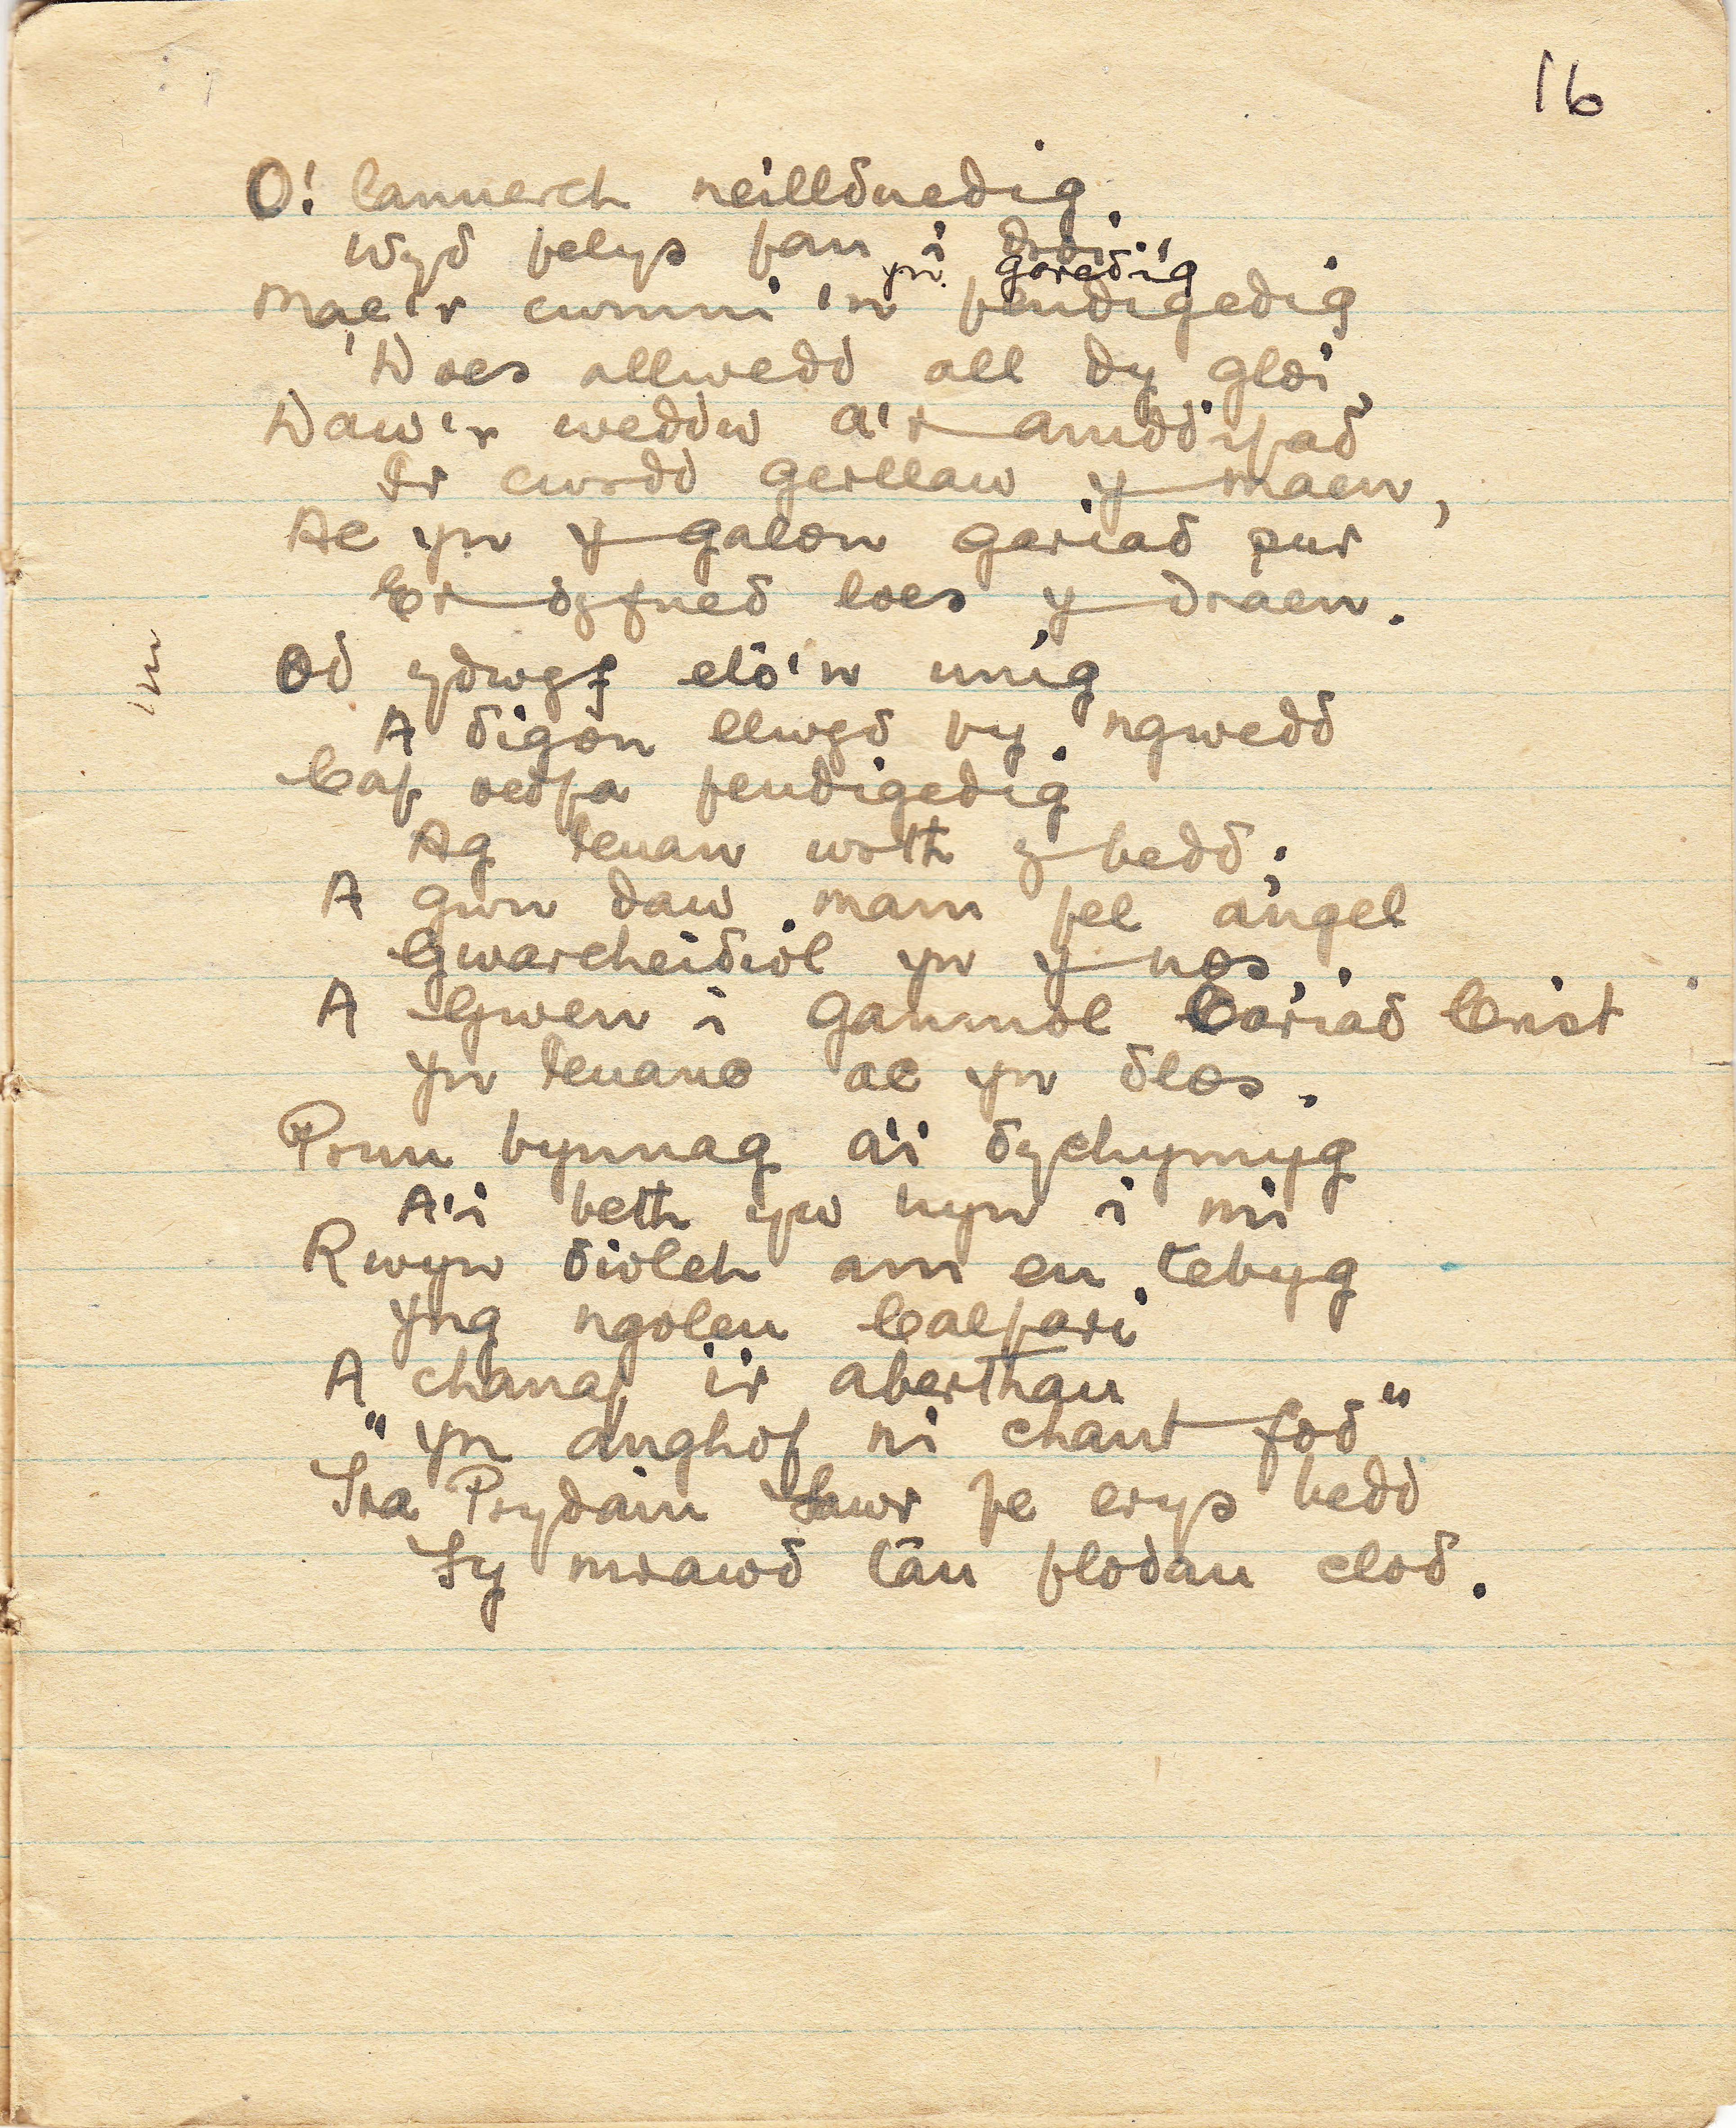 16
O! lannerch neillduedig.
Wyd felys fan i droi.
yn goredig
Mae'r cwmni 'n fendigedig
'Does allwedd all dy gloi,
Daw'r weddw a'r amddifad
Ir cwrdd gerllaw y maen,
Ac yn y galon gariad pur
Er dyfned loes y draen.
Od ydwyf eto'n unig
A digon llwyd fy ngwedd
Caf oedfa fendigedig
Ag Ieuan wrth y bedd;
A gwn daw mam fel angel
Gwarcheidiol yn y nos,
A Gwen i ganmol Cariad Crist
Yn Ieuanc ac yn dlos.
Prun bynnag ai dychymyg
A'i beth yw hyn i mi
Rwyn diolch am eu tebyg
Yng ngoleu Calfari
A chanaf i'r aberthau
"Yn anghof ni chant fod"
Tra Prydain Fawr fe erys bedd
Fy mrawd tan flodau clod.